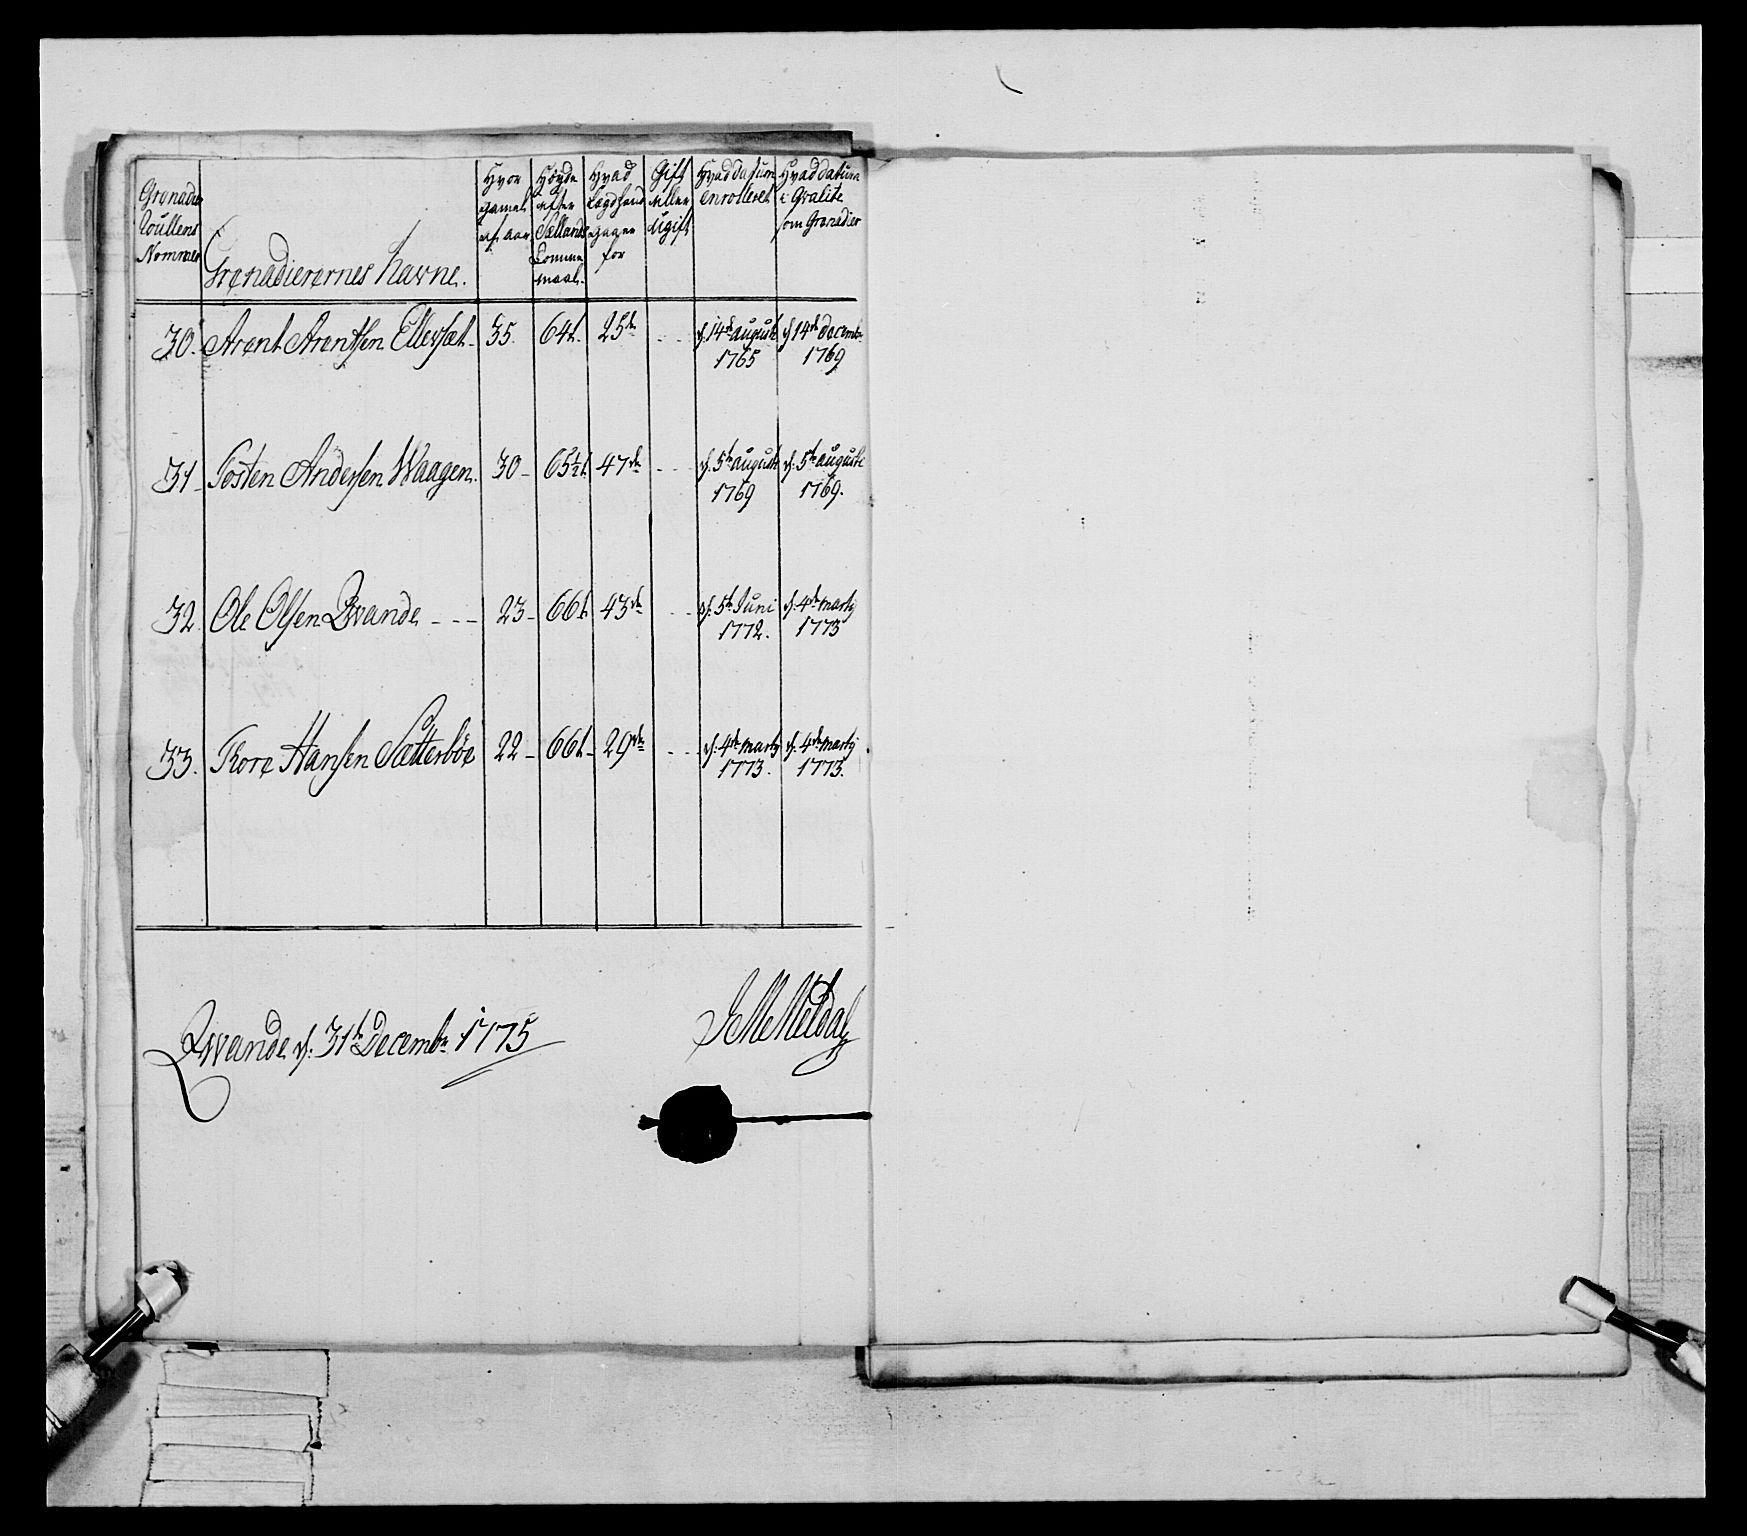 Grenadeer
Roullens
Nommer
Grenadierernes Navne.
Hvor
gamel
af aar
Höyde
efter
Sællands
Tomme
maal.
Hvad
Lægd hand
gaaer
for
Gift
eller
Ugift
Hvad Datum
enrolleret
Hvad Datum
i Qvalité
som Grenadier
30. Arent Arentsen Ellefsæt. 35. 64t. 25de - - d. 14de august d 14de Decembr
1765 1769
31 Tosten Andersen Waagen. 30 - 65½t. 47de - - d. 5te august d. 5te august
1769 1769.
32. Ole Olsen Qvande - - - 23 - 66t. 43de - - d. 5te Juni d. 4de martij
1772. 1773
33. Tore Hansen Sætterböe 22 - 66t - 29de - - d. 4de martij d. 4de martij
1773. 1773.
Qvande d. 31te Decembr 1775
Meldal